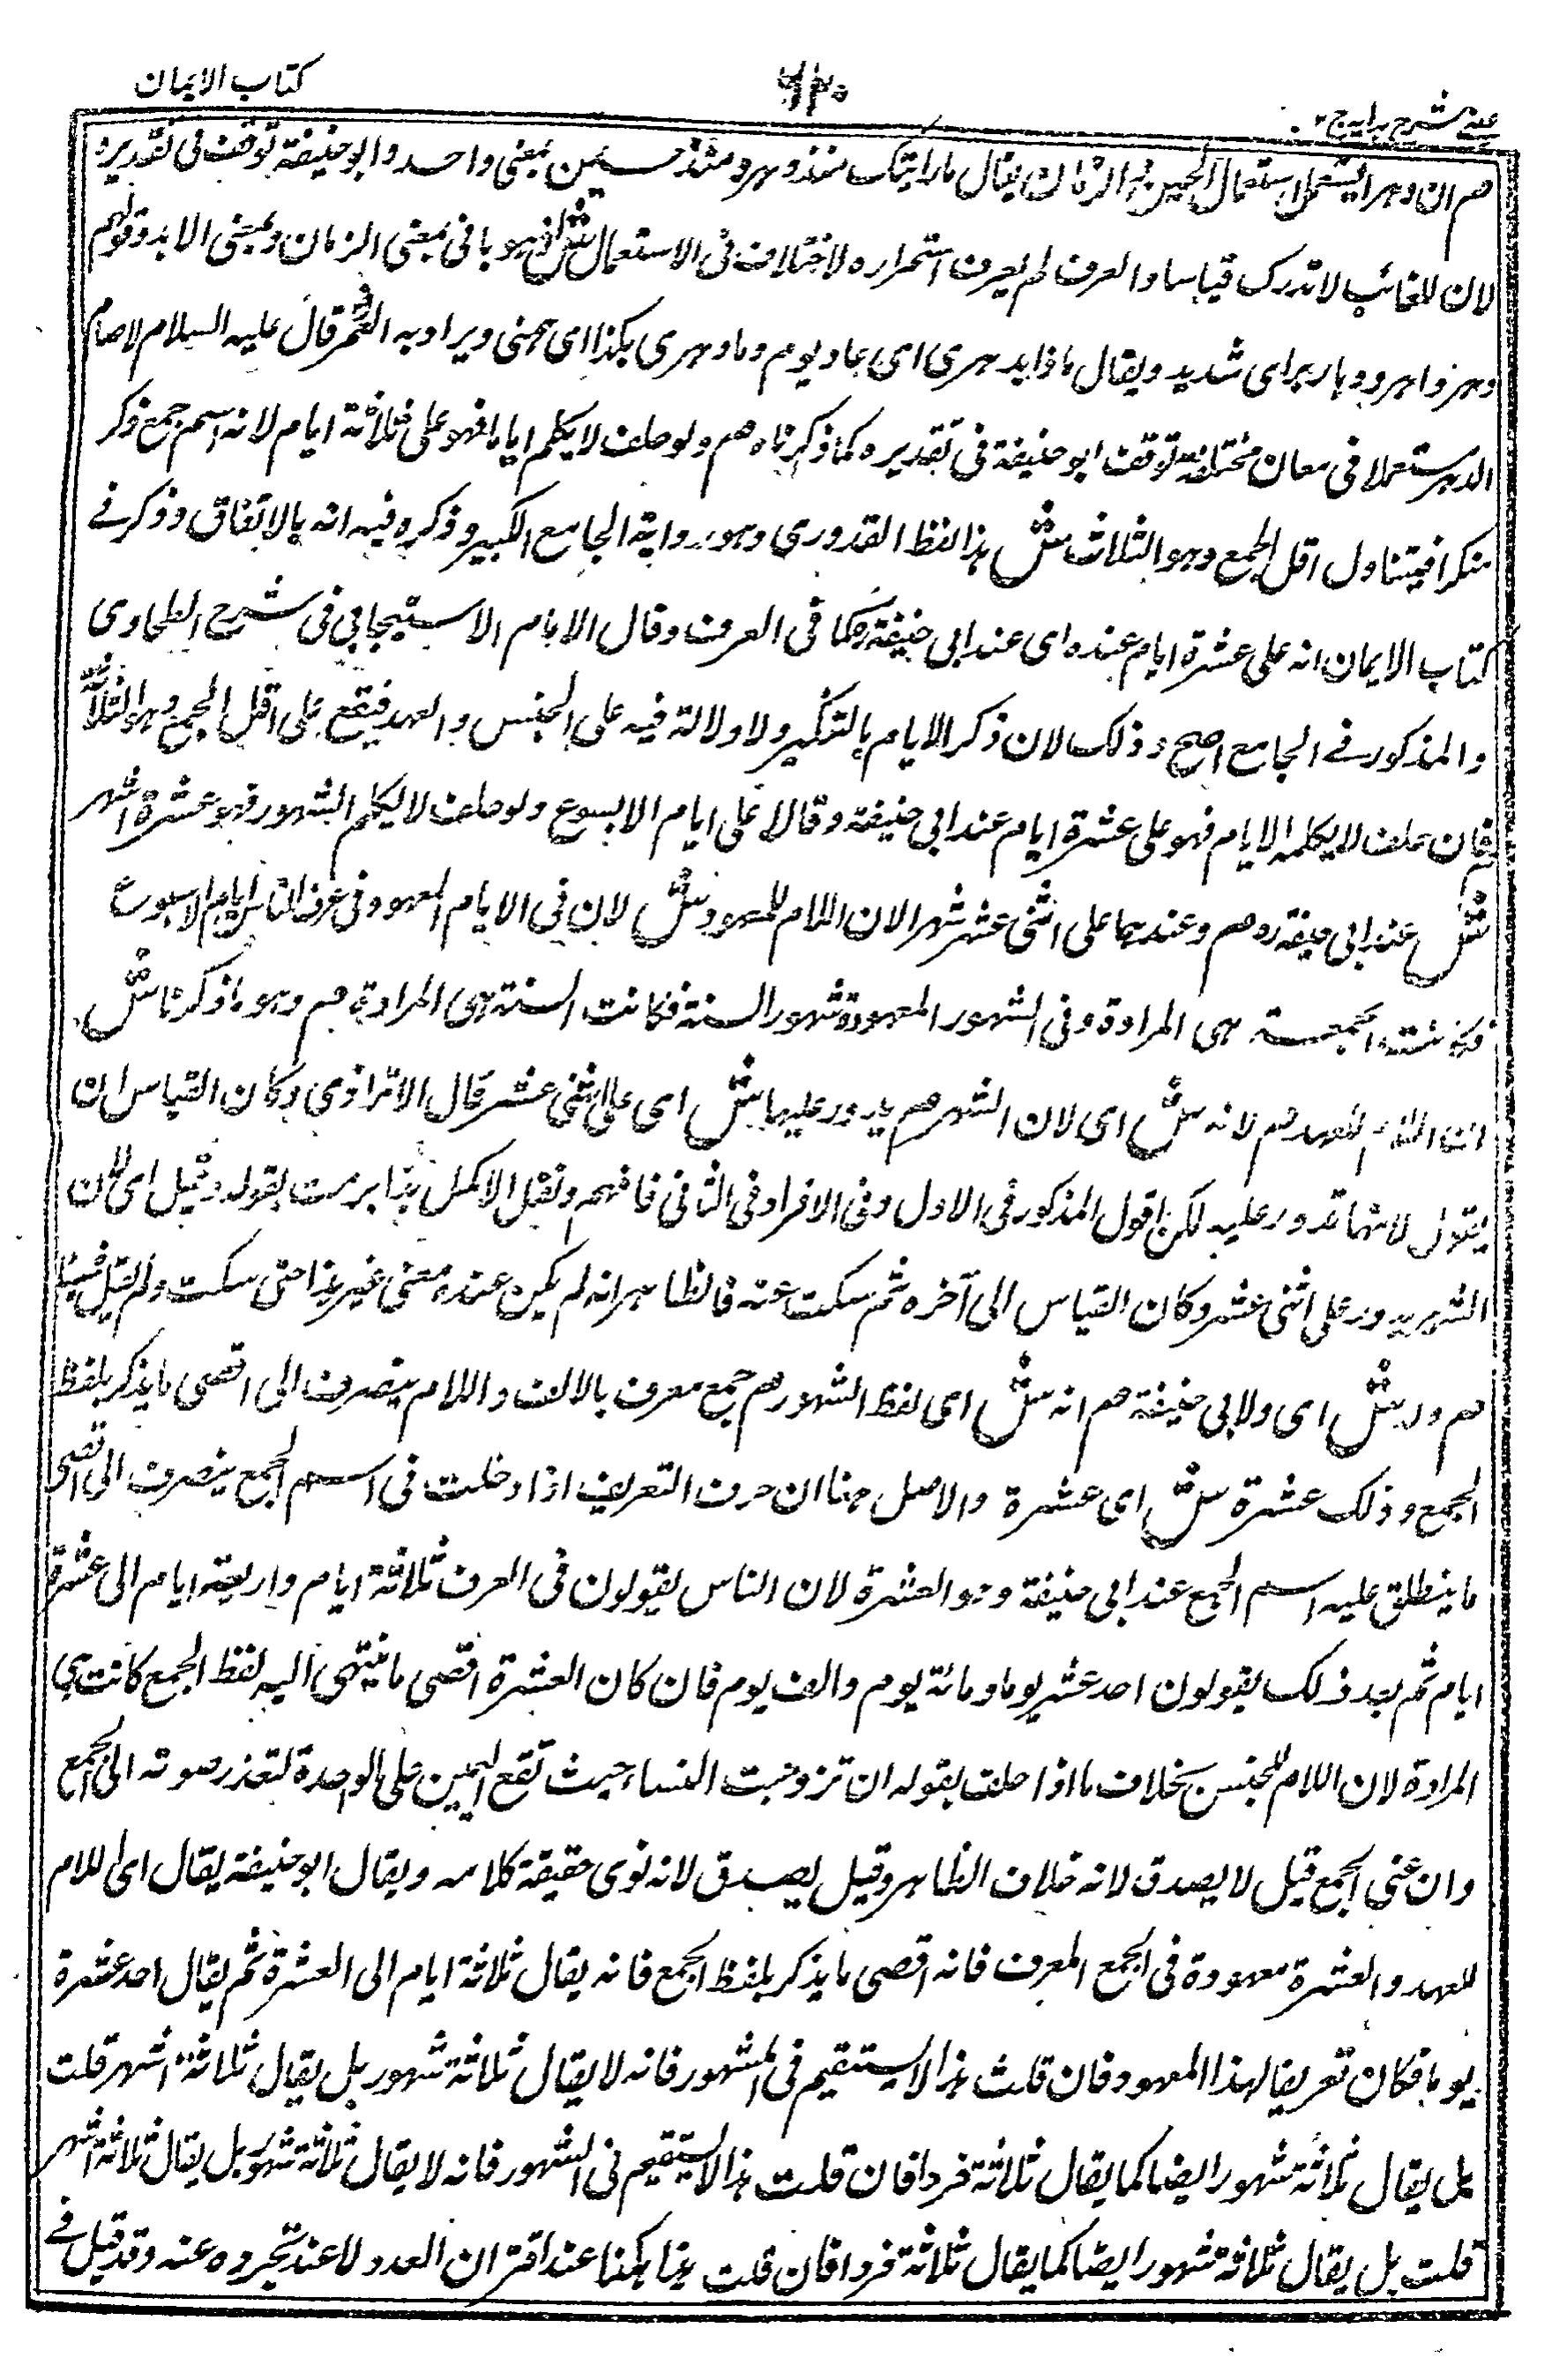 عينى شرح هدايہ ج ٢
٦٢٠
كتاب الايمان
هم ان دهرا يستعمل استعمال الحين فى الزمان يقال ما رايتك منذ دهر ومنذ حين بمعنى واحد وابو حنيفة توقف فى تقديره
لان اللغات لا تدرك قياسا والعرف لم يعرف استمراره لاختلاف فى الاستعمال ش فهو باق بمعنى الزمان وبمعنى الابد وقولهم
دهر داهر ودهارير اى شديد ويقال ما ذا بدهرى اى عادتى وما دهرى بكذا اى همتى ويراد به العمر قال عليه السلام لا صام
الدهر مستعملا فى معان مختلفة توقف ابو حنيفة فى تقديره كما ذكرناه هم ولو حلف لا يكلم اياما فهو على ثلاثة ايام لانه اسم جمع ذكر
منكرا فيتناول اقل الجمع وهو الثلاث ش هذا لفظ القدورى وهو رواية الجامع الكبير وذكره فيه انه بالاتفاق وذكر فے
كتاب الايمان انه على عشرة ايام عنده اى عند ابى حنيفة كما فى العرف وقال الامام الاسبيجابى فى شرح الطحاوى
والمذكور فے الجامع اصح وذلك لان ذكر الايام بالتنكير ولا دلالة فيه على الجنس والعهد فيقع على اقل الجمع وهو الثلاثة
هم فان حلف لا يكلمه الايام فهو على عشرة ايام عند ابى حنيفة وقالا على ايام الاسبوع ولو حلف لا يكلم الشهور فهو عشرة اشهر
ش عند ابى حنيفة ره هم وعندهما على اثنى عشر شهرا لان اللام للمعهود ش لان فى الايام المعهود فى عرف الناس ايام الاسبوع
فكانت الجمعة هى المرادة وفى الشهور المعهودة شهور السنة فكانت السنة هى المرادة هم وهو ما ذكرنا ش
ان اللام للعهد هم لانه ش اى لان الشهر هم يدور عليها ش اى على اثنى عشر قال الاترازى وكان القياس ان
يقول لانها تدور عليه لكن اقول المذكور فى الاول وفى الافراد فى الثانى فافهم ونقل الاكمل هذا برمته بقوله وقيل اى لان
الشهر يدور على اثنى عشر وكان القياس الى آخره ثم سكت عنه فالظاهر انه لم يكن عنده معنى غير هذا حتى سكت ولم يقل شيئا
هم وله ش اى ولابى حنيفة هم انه ش اى لفظ الشهور هم جمع معرف بالالف واللام ينصرف الى اقصى ما يذكر بلفظ
الجمع وذلك عشرة ش اى عشرة والاصل هنا ان حرف التعريف اذا دخلت فى اسم الجمع ينصرف الى اقصى
ما ينطلق عليه اسم الجمع عند ابى حنيفة وهو العشرة لان الناس يقولون فى العرف ثلاثة ايام واربعة ايام الى عشرة
ايام ثم بعد ذلك يقولون احد عشر يوما ومائة يوم والف يوم فان كان العشرة اقصى ما ينتهى اليه لفظ الجمع كانت هى
المرادة لان اللام للجنس بخلاف ما اذا حلف بقوله ان تزوجت النساء حيث تقع اليمين على الواحدة لتعذر صرفه الى الجمع
وان عنى الجمع قيل لا يصدق لانه خلاف الظاهر وقيل يصدق لانه نوى حقيقة كلامه ويقال ابو حنيفة يقال اى اللام
للعهد والعشرة معهودة فى الجمع المعرف فانه اقصى ما يذكر بلفظ الجمع فانه يقال ثلاثة ايام الى العشرة ثم يقال احد عشرة
يوما فكان تعريفا لهذا المعهود فان قلت هذا لا يستقيم فى الشهور فانه لا يقال ثلاثة شهور بل يقال ثلاثة اشهر قلت
بل يقال ثلاثة شهور ايضا كما يقال ثلاثة فردا فان قلت هذا لا يستقيم فى الشهور فانه لا يقال ثلاثة شهور بل يقال ثلاثة اشهر
قلت بل يقال ثلاثة شهور ايضا كما يقال ثلاثة فردا فان قلت هذا هكذا عند اقتران العدد لا عند تجرده عنه وقد قيل فے